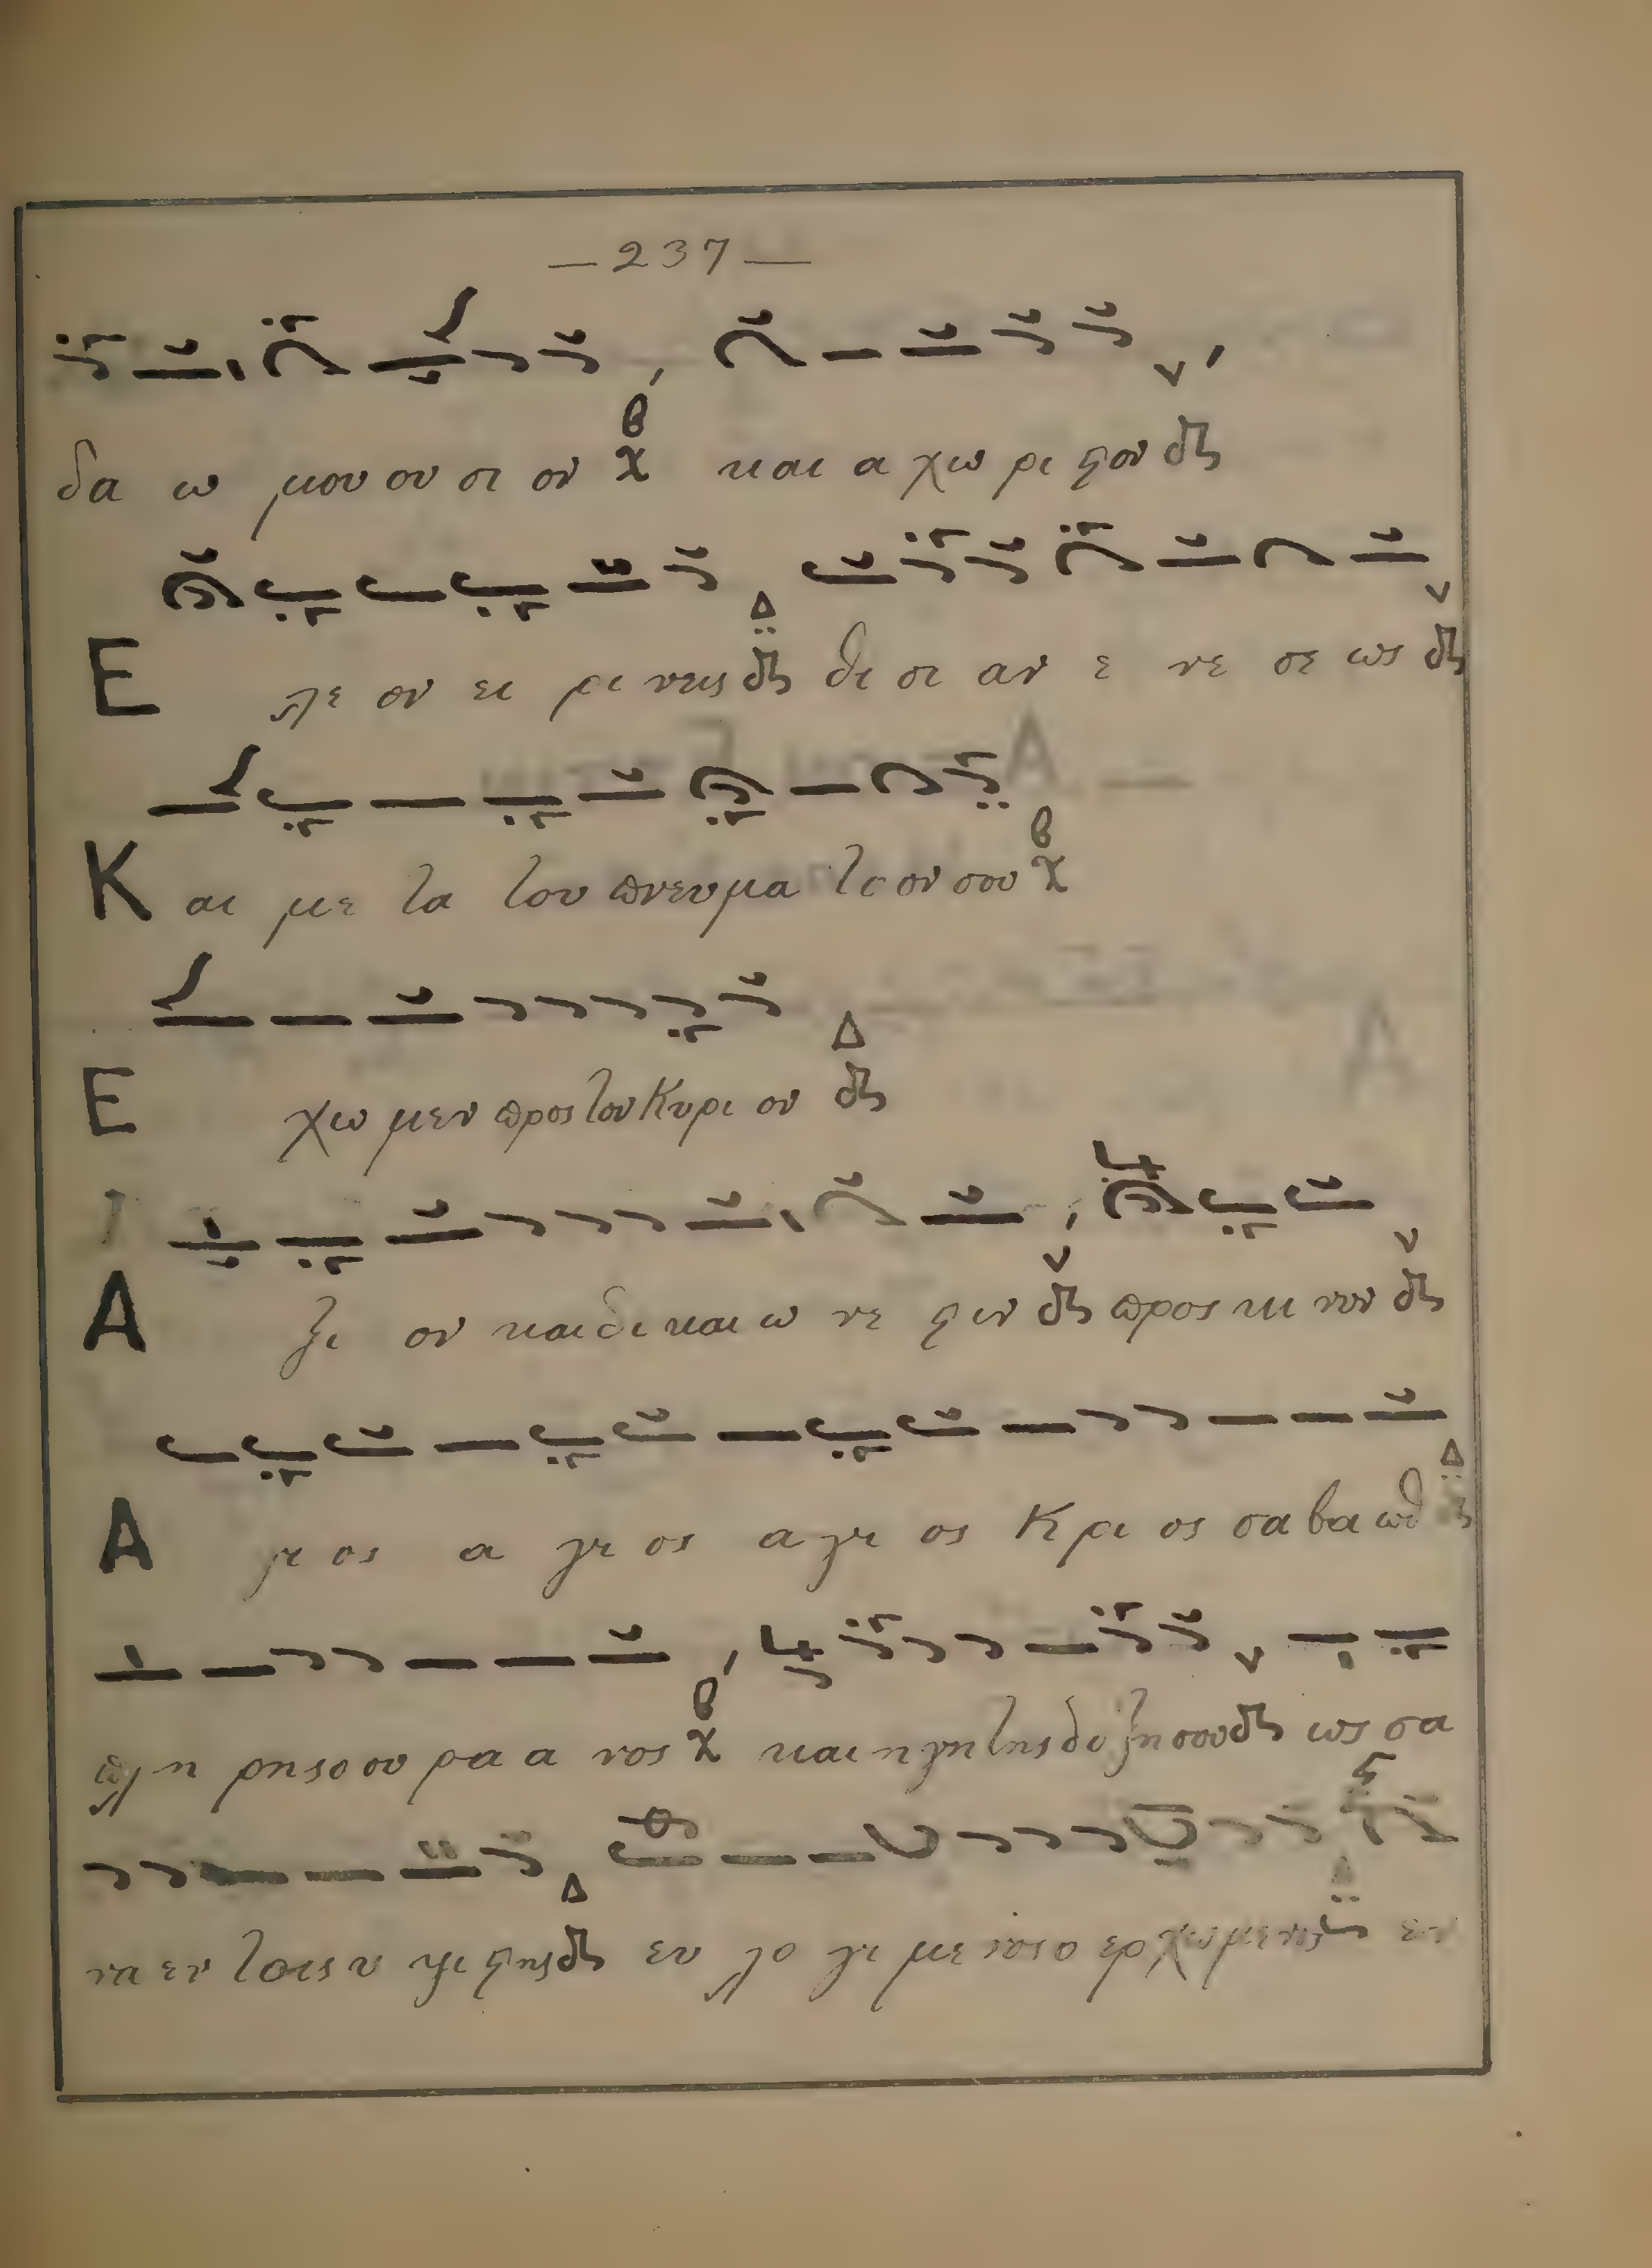 — 237 —
δα ω μου ου σι ον χ και α χω ρι ϛον
Ε λε ον ει ρι νεις θι σι αν ε νε σε ως
Και με τα του πνευμα το ον σου χ
Ε χω μεν προς τον Κυρι ον
Α ξι ον και δι και ω νε ϛιν προς κι νον
Α γι ος α γι ος α γι ος Κ ρι ος σα βα ωθ
πλη ρης ο ου ρα α νος χ και η γη της δο ξη σου ως σα
να εν τοις υ ψι ϛης ευ λο γι με νος ο ερχωμενος εν